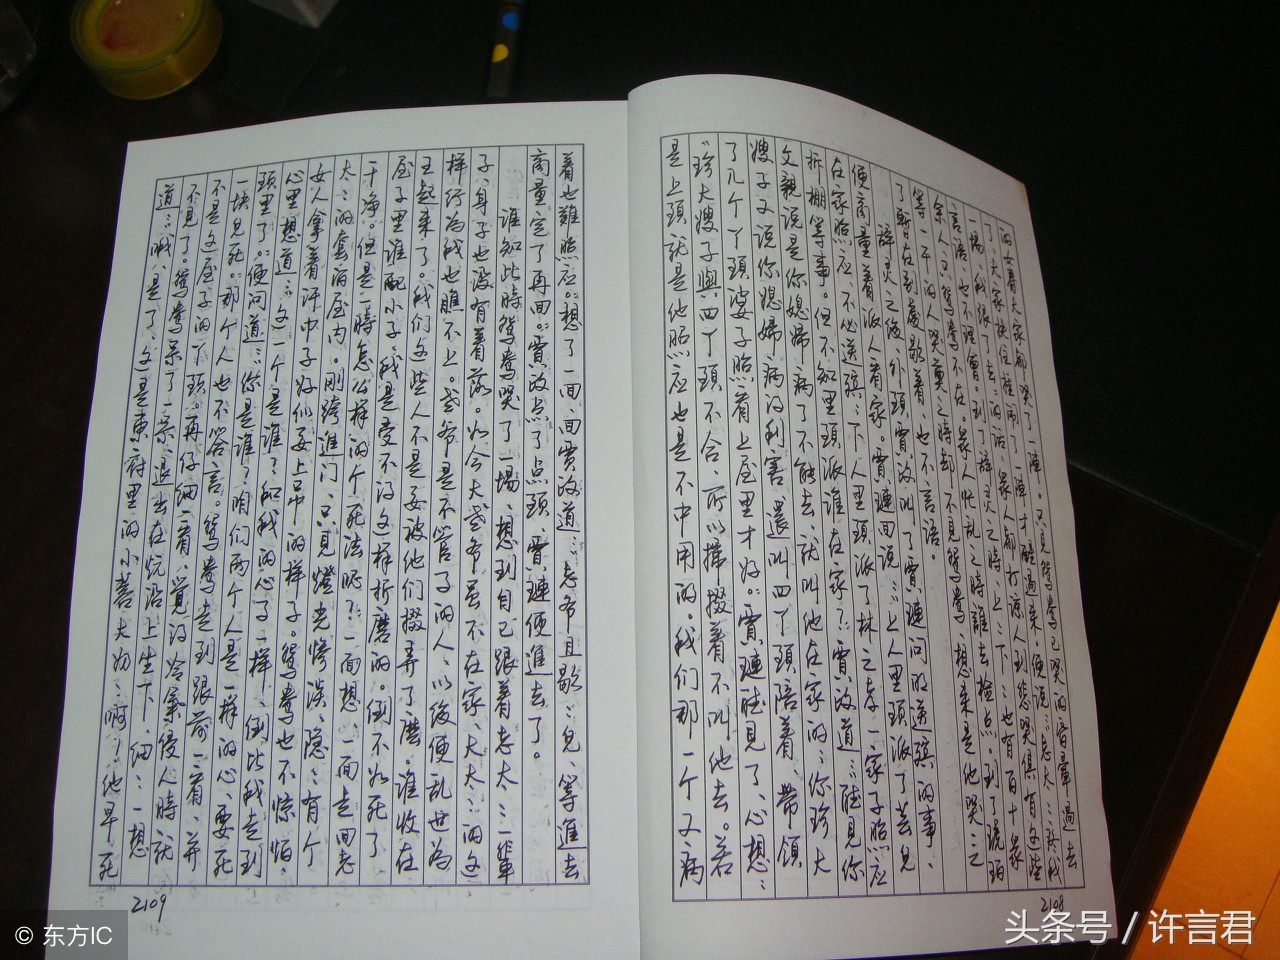 的女眷大家都哭了一陣。只見鴛鴦已哭的昏暈過去
了,大家扶住捶闹了一陣才醒過来,便說:“老太太疼我
一場,我跟了去”的话。眾人都打諒人到悲哭俱有这些
言语,也不理會。到了辞灵之時,上上下下也有百十眾
余人,只鴛鴦不在。眾人忙乱之時,誰去检点。到了琥珀
等一干的人哭奠之時,却不見鴛鴦,想来是他哭乏
了,暫在别處歇着,也不言語。
辞灵之後,外頭賈政叫了賈璉问明送殯的事,
便商量着派人看家。賈璉回说:“上人里頭派了芸兒
在家照应,不必送殯;下人里頭派了林之孝一家子照应
拆棚等事。但不知里頭派誰在家?”賈政道:“聽見你
父親说是你媳婦病了不能去,就叫他在家的。你珍大
嫂子又说你媳婦病的利害,還叫四丫頭陪着,帶領
了几个丫頭婆子照看上屋里才好。”賈璉聽見了,心想:
“珍大嫂子與四丫頭不合,所以攛掇着不叫他去。若
是上頭就是他照应也是不中用的。我们那一个又病
2108
着也難照应。”想了一回,回賈政道:“老爷且歇歇兒,等進去
商量定了再回。”賈政点了点頭,賈璉便進去了。
谁知此時鴛鴦哭了一場,想到自己跟着老太太一輩
子,身子也没有着落。如今大老爷虽不在家,大太太的这
样行为我也瞧不上。老爷是不管了的人,以後便乱世为
王起来了。我们这些人不是要被他们掇弄了麼。谁收在
屋子里,谁配小子,我是受不得这样折磨的,倒不如死了
干净。但是一時怎么样的个死法呢?一面想,一面走回老
太太的套间屋内。剛跨進门,只見燈光慘淡,隐隐有个
女人拿着汗巾子好似要上吊的样子。鴛鴦也不惊怕,
心里想道:“这一个是谁?和我的心了一样,倒比我走到
頭里了。”便问道:“你是谁?咱们两个人是一样的心,要死
一块兒死。”那个人也不答言。鴛鴦走到跟前一看,并
不是这屋子的丫頭。再仔细一看,覺得冷氣侵人時就
不見了。鴛鴦呆了一呆,退出在炕沿上坐下,细细一想
道:“哦,是了,这是東府里的小蓉大奶奶啊!他早死
2109
© 东方IC
头条号 / 许言君